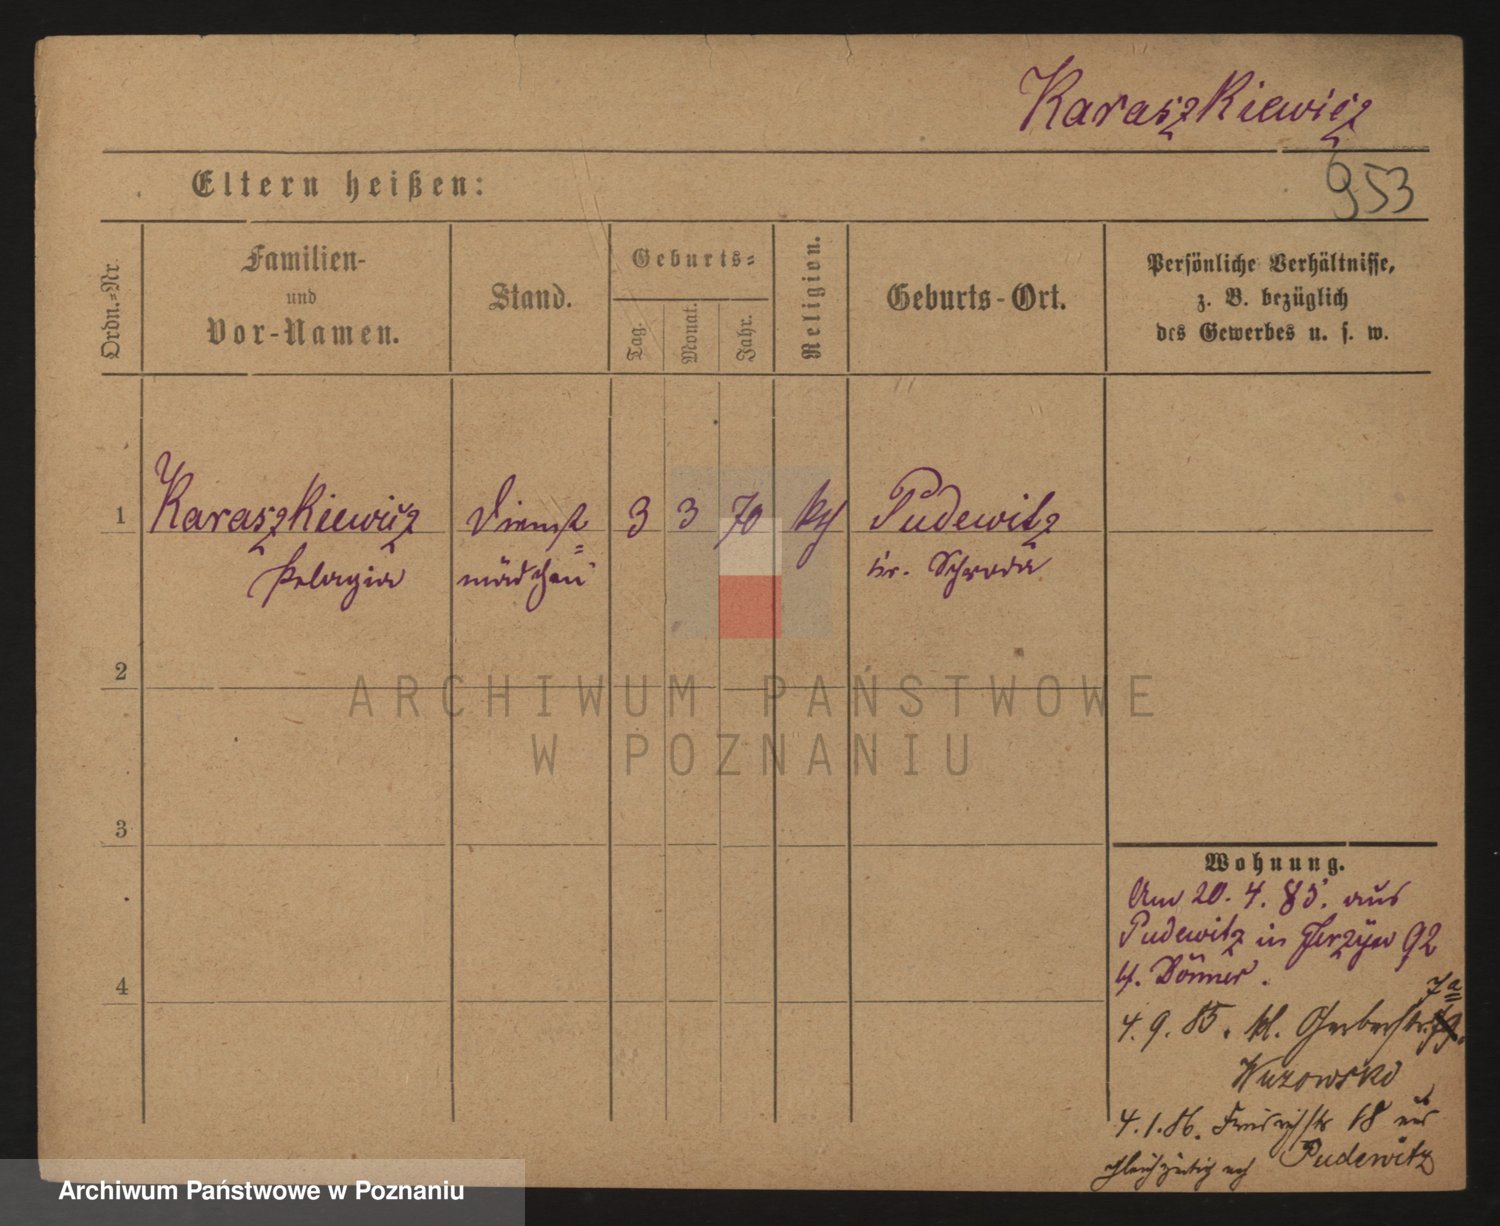 Karaszkiewicz
953
Eltern heißen:
Ordn.=Nr.
Familien-
und
Vor-Namen.
Stand.
Geburts=
Tag.
Monat.
Jahr.
Religion.
Geburts-Ort.
Persönliche Verhältnisse,
z. B. bezüglich
des Gewerbes u. s. w.
1 Karaszkiewicz Dienst= 3 3 70 kth Pudewitz
Pelagia mädchen kr. Schroda
2
ARCHIWUM PAŃSTWOWE
W POZNANIU
3
4
Wohnung.
Am 20. 4. 85. aus
Pudewitz in Jerzyce 92
b. Bönner.
7a
4. 9. 85. kl. Gerberstr.
4. 1. 86. 18
gleichzeitig Pudewitz
Archiwum Państwowe w Poznaniu